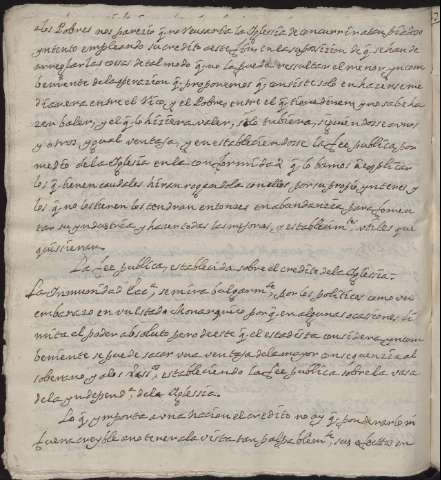 a los Pobres nos parezio q. no reusaria la Iglesia de concurrir a tan piadoso
yntento empleando su credito a este fin, en la suposizion de q. se han de
arreglar las cosas de tal modo q. no la puede resultar el menor yncom
beniente de la operazion q. proponemos q. consiste solo en hazerse me
dianera entre el Rico, y el Pobre, entre el q. tiene dinero, y no sabe ha
zerlo baler, y el q. lo hiziera valer, si lo tubiera, siguiendose a unos
y otros, ygual ventaja, y en estableciendose la fee publica, por
medio de la Iglesia en la conformidad q. lo bamos a explicar
los q. tienen caudales hiran rogandola con ellos, por su propio ynteres, y
los q. no los tienen los tendran entonces en abundanzia para fomen
tar su yndustria, y hazer todas las mejoras, y establezim.tos utiles que
quisieren.
La fee publica, establezida sobre el credito de la Iglesia.
La Inmunidad Ecc.ca se mira bulgarm.te, por los politicos como un
embarazo en un estado Monarquico por q. en algunas ocasiones li
mita el poder absoluto pero de este q. el estadista considera yncom
beniente se puede sacar una ventaja de la mayor consequenzia al
soberano, y a los estableziendo la fee publica sobre la vasa
de la yndepend.a de la Iglesia.
Lo q. ymporta a una Nacion el credito no ay q. ponderarlo, ni
fuera creyble a no tener a la vista tan palpablem.te, sus efectos en